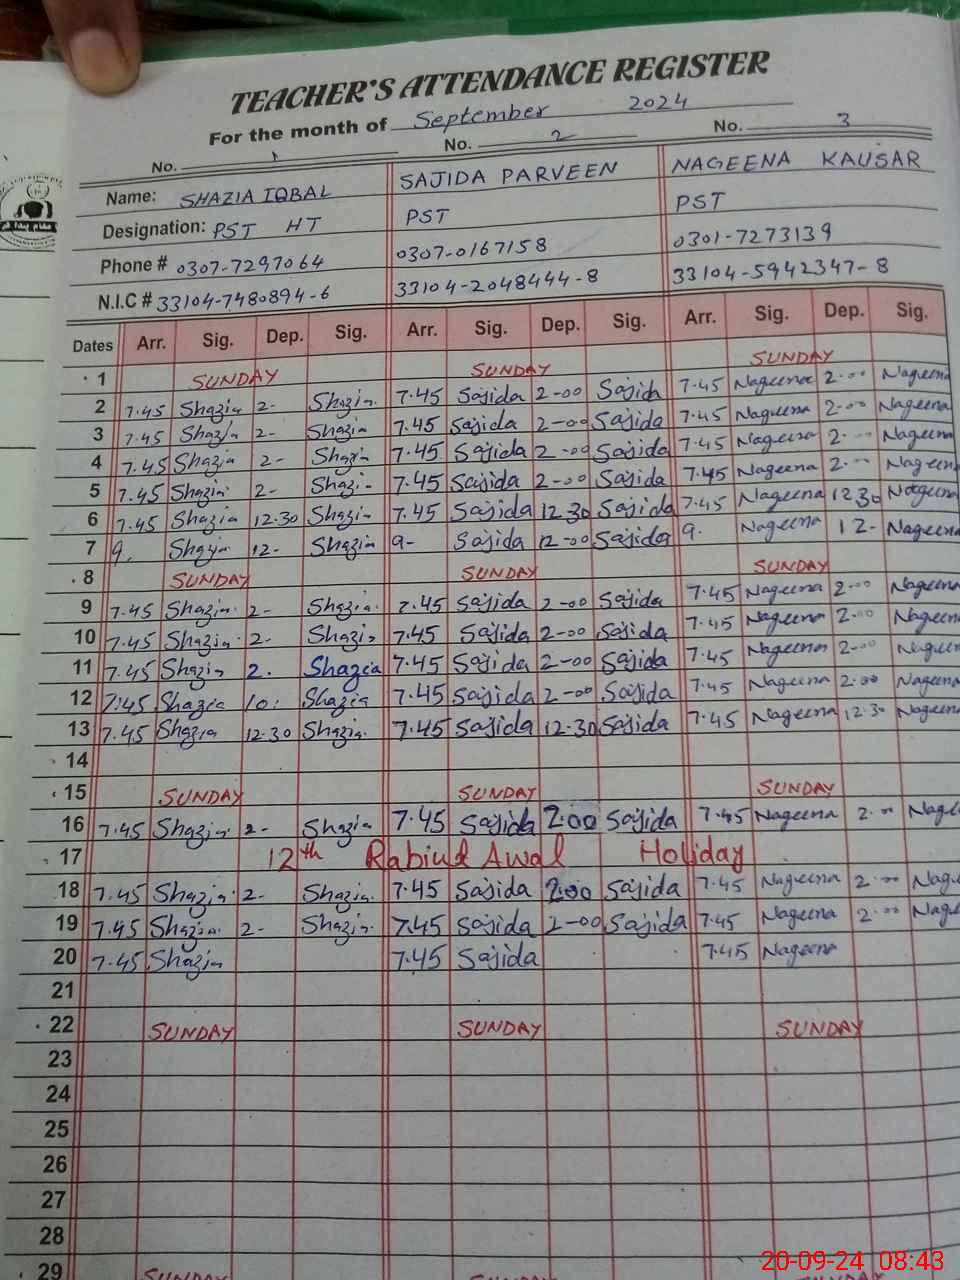 TEACHER'S ATTENDANCE REGISTER
For the month of September 2024
No. 1 No. 2 No. 3
Name: SHAZIA IQBAL SAJIDA PARVEEN NAGEENA KAUSAR
Designation: PST HT PST PST
Phone # 0307-7297064 0307-0167158 0301-7273139
N.I.C # 33104-7480894-6 33104-2048444-8 33104-5942347-8
Dates Arr. Sig. Dep. Sig. Arr. Sig. Dep. Sig. Arr. Sig. Dep. Sig.
1 SUNDAY SUNDAY SUNDAY
2 7.45 Shazia 2- Shazia 7.45 Sajida 2-00 Sajida 7.45 Nageena 2.00 Nageena
3 7.45 Shazia 2- Shazia 7.45 Sajida 2-00 Sajida 7.45 Nageena 2.00 Nageena
4 7.45 Shazia 2- Shazia 7.45 Sajida 2-00 Sajida 7.45 Nageena 2.00 Nageena
5 7.45 Shazia 2- Shazia 7.45 Sajida 2-00 Sajida 7.45 Nageena 2.00 Nageena
6 7.45 Shazia 12.30 Shazia 7.45 Sajida 12.30 Sajida 7.45 Nageena 12.30 Nageena
7 9. Shazia 12- Shazia 9- Sajida 12-00 Sajida 9. Nageena 12- Nageena
8 SUNDAY SUNDAY SUNDAY
9 7.45 Shazia 2- Shazia 7.45 Sajida 2-00 Sajida 7.45 Nageena 2.00 Nageena
10 7.45 Shazia 2- Shazia 7.45 Sajida 2-00 Sajida 7.45 Nageena 2.00 Nageena
11 7.45 Shazia 2. Shazia 7.45 Sajida 2-00 Sajida 7.45 Nageena 2.00 Nageena
12 7:45 Shazia 10: Shazia 7.45 Sajida 2-00 Sajida 7.45 Nageena 2.00 Nageena
13 7.45 Shazia 12.30 Shazia 7.45 Sajida 12.30 Sajida 7.45 Nageena 12.30 Nageena
14
15 SUNDAY SUNDAY SUNDAY
16 7.45 Shazia 2- Shazia 7.45 Sajida 2.00 Sajida 7.45 Nageena 2.00 Nage
17 12th Rabiul Awal Holiday
18 7.45 Shazia 2- Shazia 7.45 Sajida 2.00 Sajida 7.45 Nageena 2.00 Nage
19 7.45 Shazia 2- Shazia 7.45 Sajida 2-00 Sajida 7.45 Nageena 2.00 Nage
20 7.45 Shazia 7.45 Sajida 7.45 Nageena
21
22 SUNDAY SUNDAY SUNDAY
23
24
25
26
27
28
29 SUNDAY SUNDAY
20-09-24 08:43